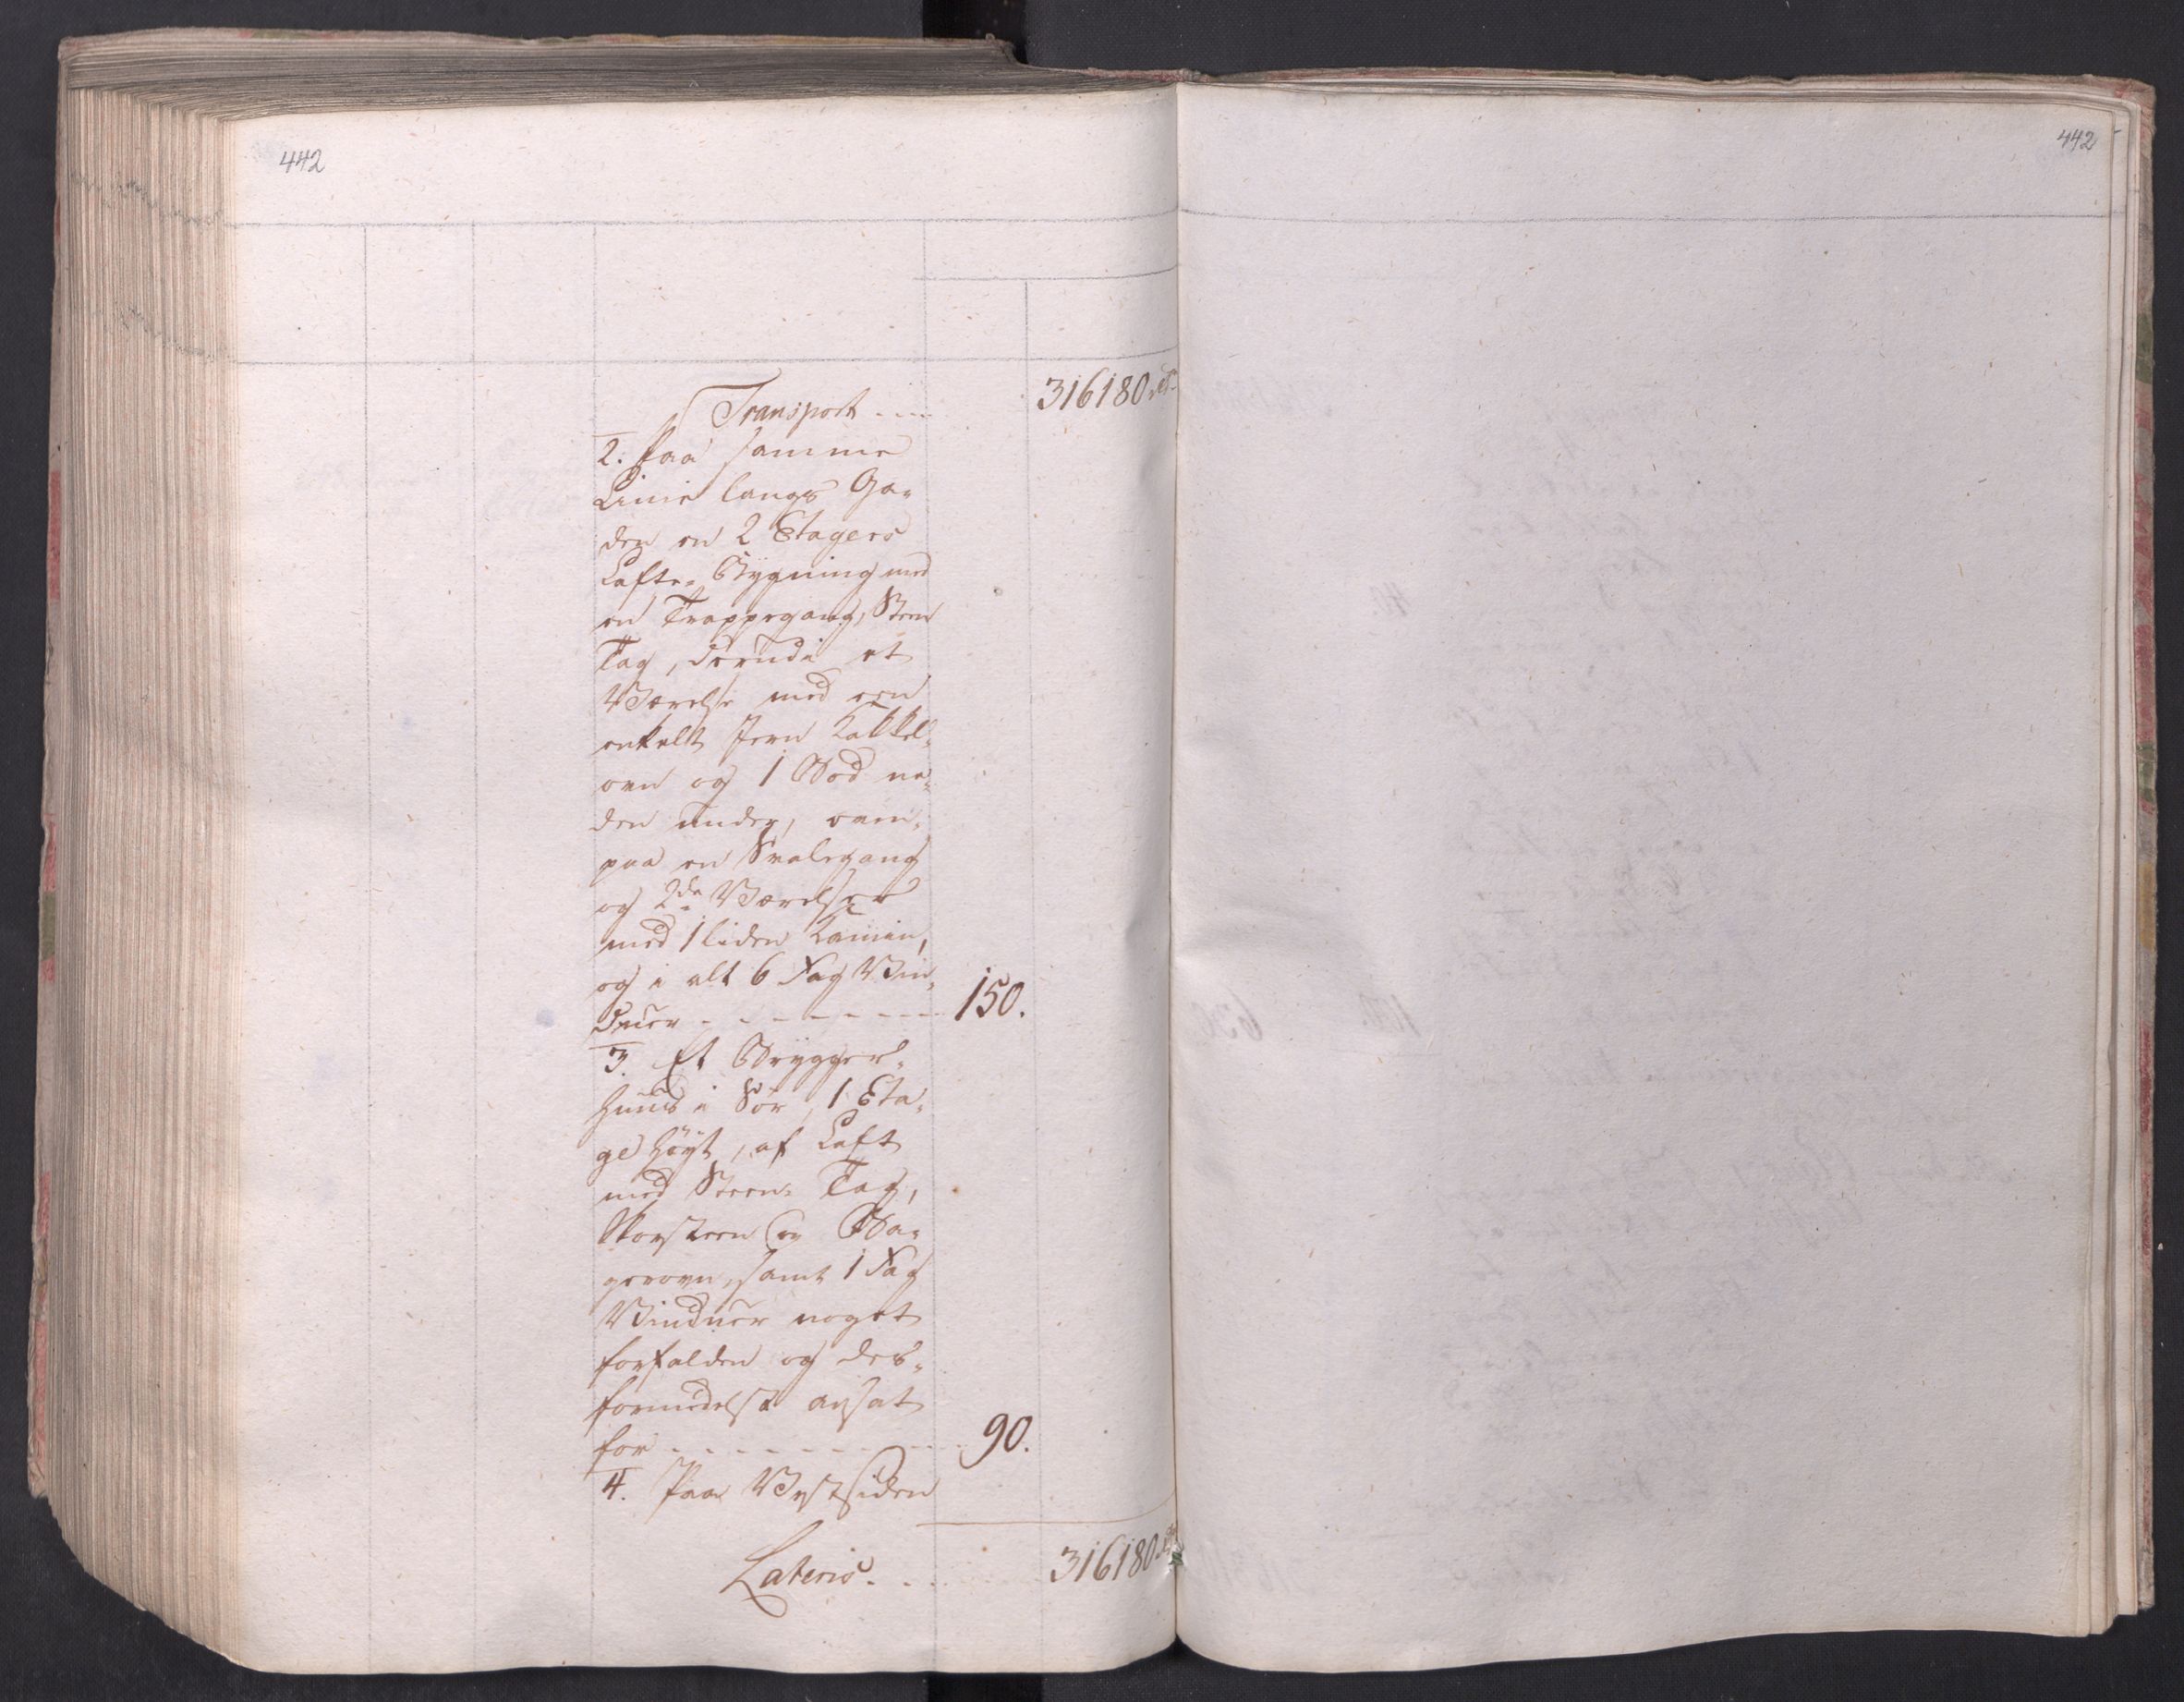 442
442
Transport - - - 316180 rdr
2. Paa samme
Linie langs Ga-
den en 2 Etagers
Lafte-Bygning med
en Trappegang, Steen
Tag, derudi et
Værelse med een
enkelt Jern Kakkel-
ovn og 1 Bod ne-
den under, oven-
paa en Svalegang
og 2de Værelser
med 1 liden Kamin,
og i alt 6 Fag Vin-
duer - - - - - - - 150.
3. Et Brygger-
huus i Sør, 1 Eta-
ge høyt, af Laft
med Steen-Tag,
Skorsteen og Ba-
gerovn, samt 1 Fag
Vinduer noget
forfalden og des-
formedelst ansat
for - - - - - - - - 90.
4. Paa Vestsiden
Lateris - - - 316180 rdr